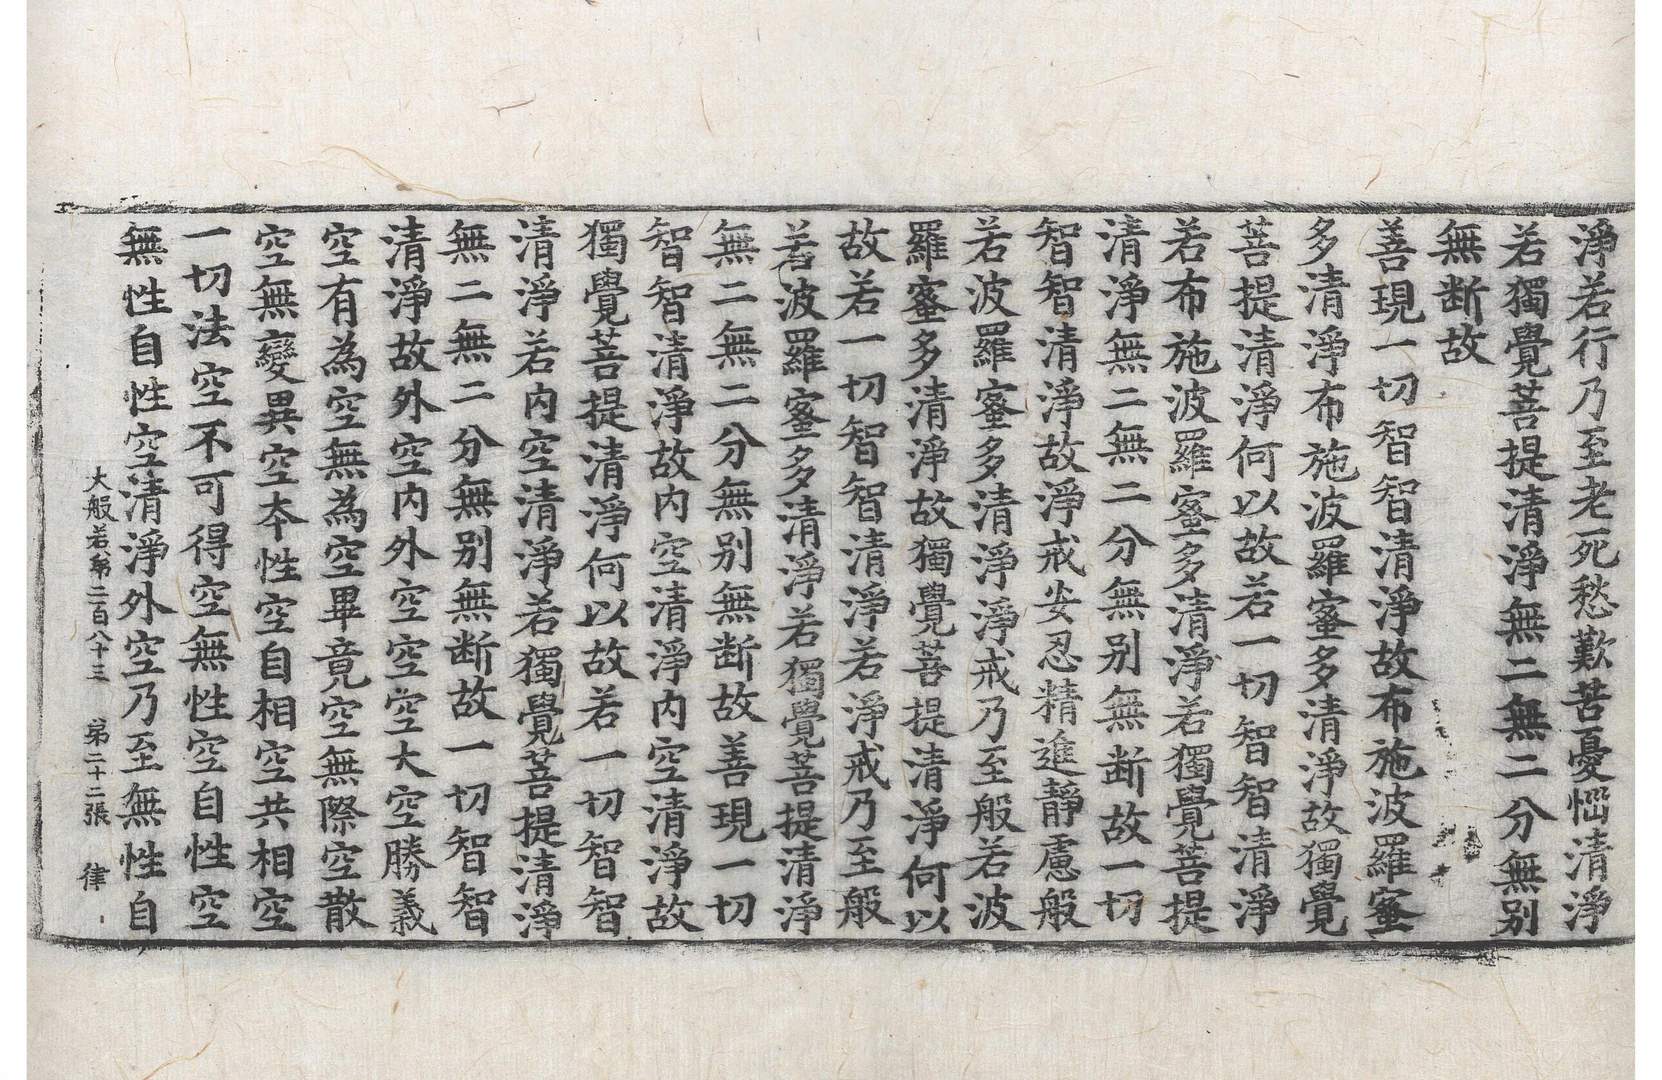 淨若行乃至老死愁歎苦憂惱清淨
若獨覺菩提清淨無二無二分無別
無断故
善現一切智智清淨故布施波羅蜜
多清淨布施波羅蜜多清淨故獨覺
菩提清淨何以故若一切智智清淨
若布施波羅蜜多清淨若獨覺菩提
清淨無二無二分無別無断故一切
智智清淨故淨戒安忍精進靜慮般
若波羅蜜多清淨淨戒乃至般若波
羅蜜多清淨故獨覺菩提清淨何以
故若一切智智清淨若淨戒乃至般
若波羅蜜多清淨若獨覺菩提清淨
無二無二分無別無断故善現一切
智智清淨故內空清淨內空清淨故
獨覺菩提清淨何以故若一切智智
清淨若內空清淨若獨覺菩提清淨
無二無二分無別無断故一切智智
清淨故外空內外空空空大空勝義
空有為空無為空畢竟空無際空散
空無變異空本性空自相空共相空
一切法空不可得空無性空自性空
無性自性空清淨外空乃至無性自
大般若第二百八十三 第二十二張 律